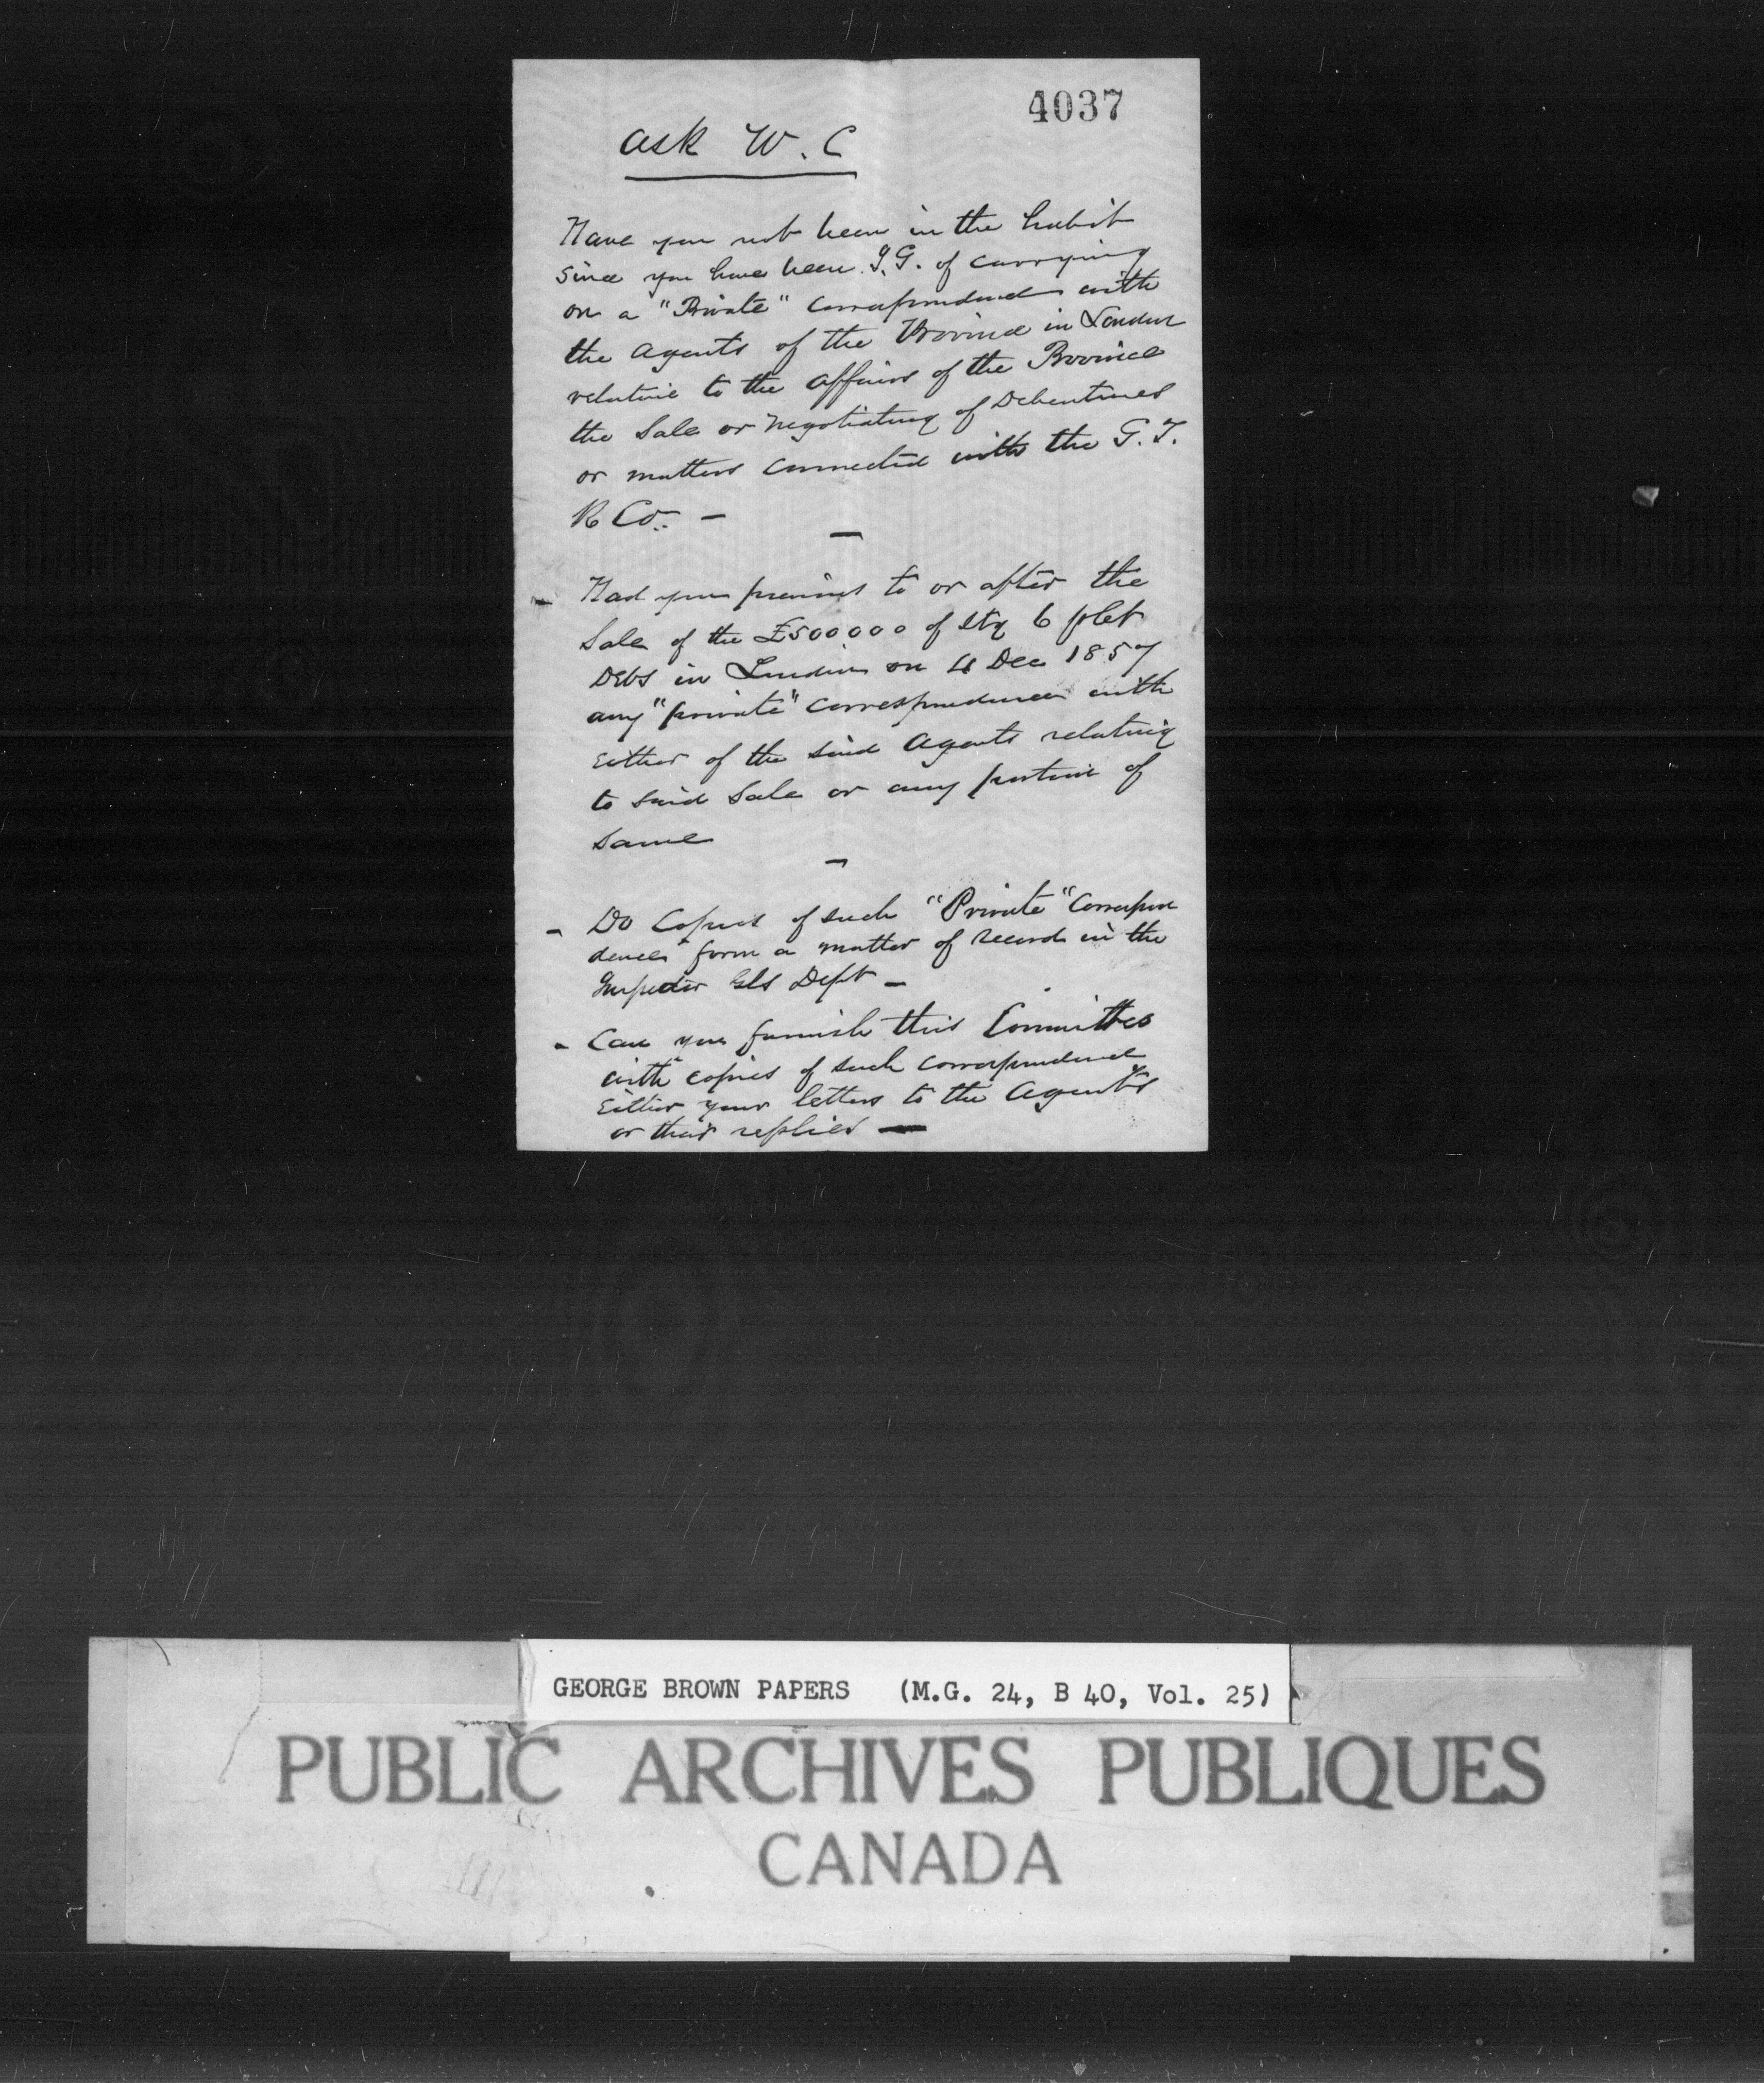 4037
ask W. C
Have you not been in the habit
since you have been I.G. of carrying
on a "Private" correspondence with
the agents of the Province in London
relative to the affairs of the Province
the Sale or negotiating of Debentures
or matters connected with the G. T.
R Co. —
—
- Had you previous to or after the
Sale of the £500000 of Stg 6 pCt
Debs in London on Dec 1857
any "private" correspondence with
either of the said Agents relating
to said Sale or any portion of
same
—
- Do Copies of such "Private" Correspon
dence form a matter of record in the
Inspector Gls Dept —
- Can you furnish this Committee
with copies of such correspondence
Either your letters to the Agents
or their replies —
GEORGE BROWN PAPERS (M.G. 24, B 40, Vol. 25)
PUBLIC ARCHIVES PUBLIQUES
CANADA